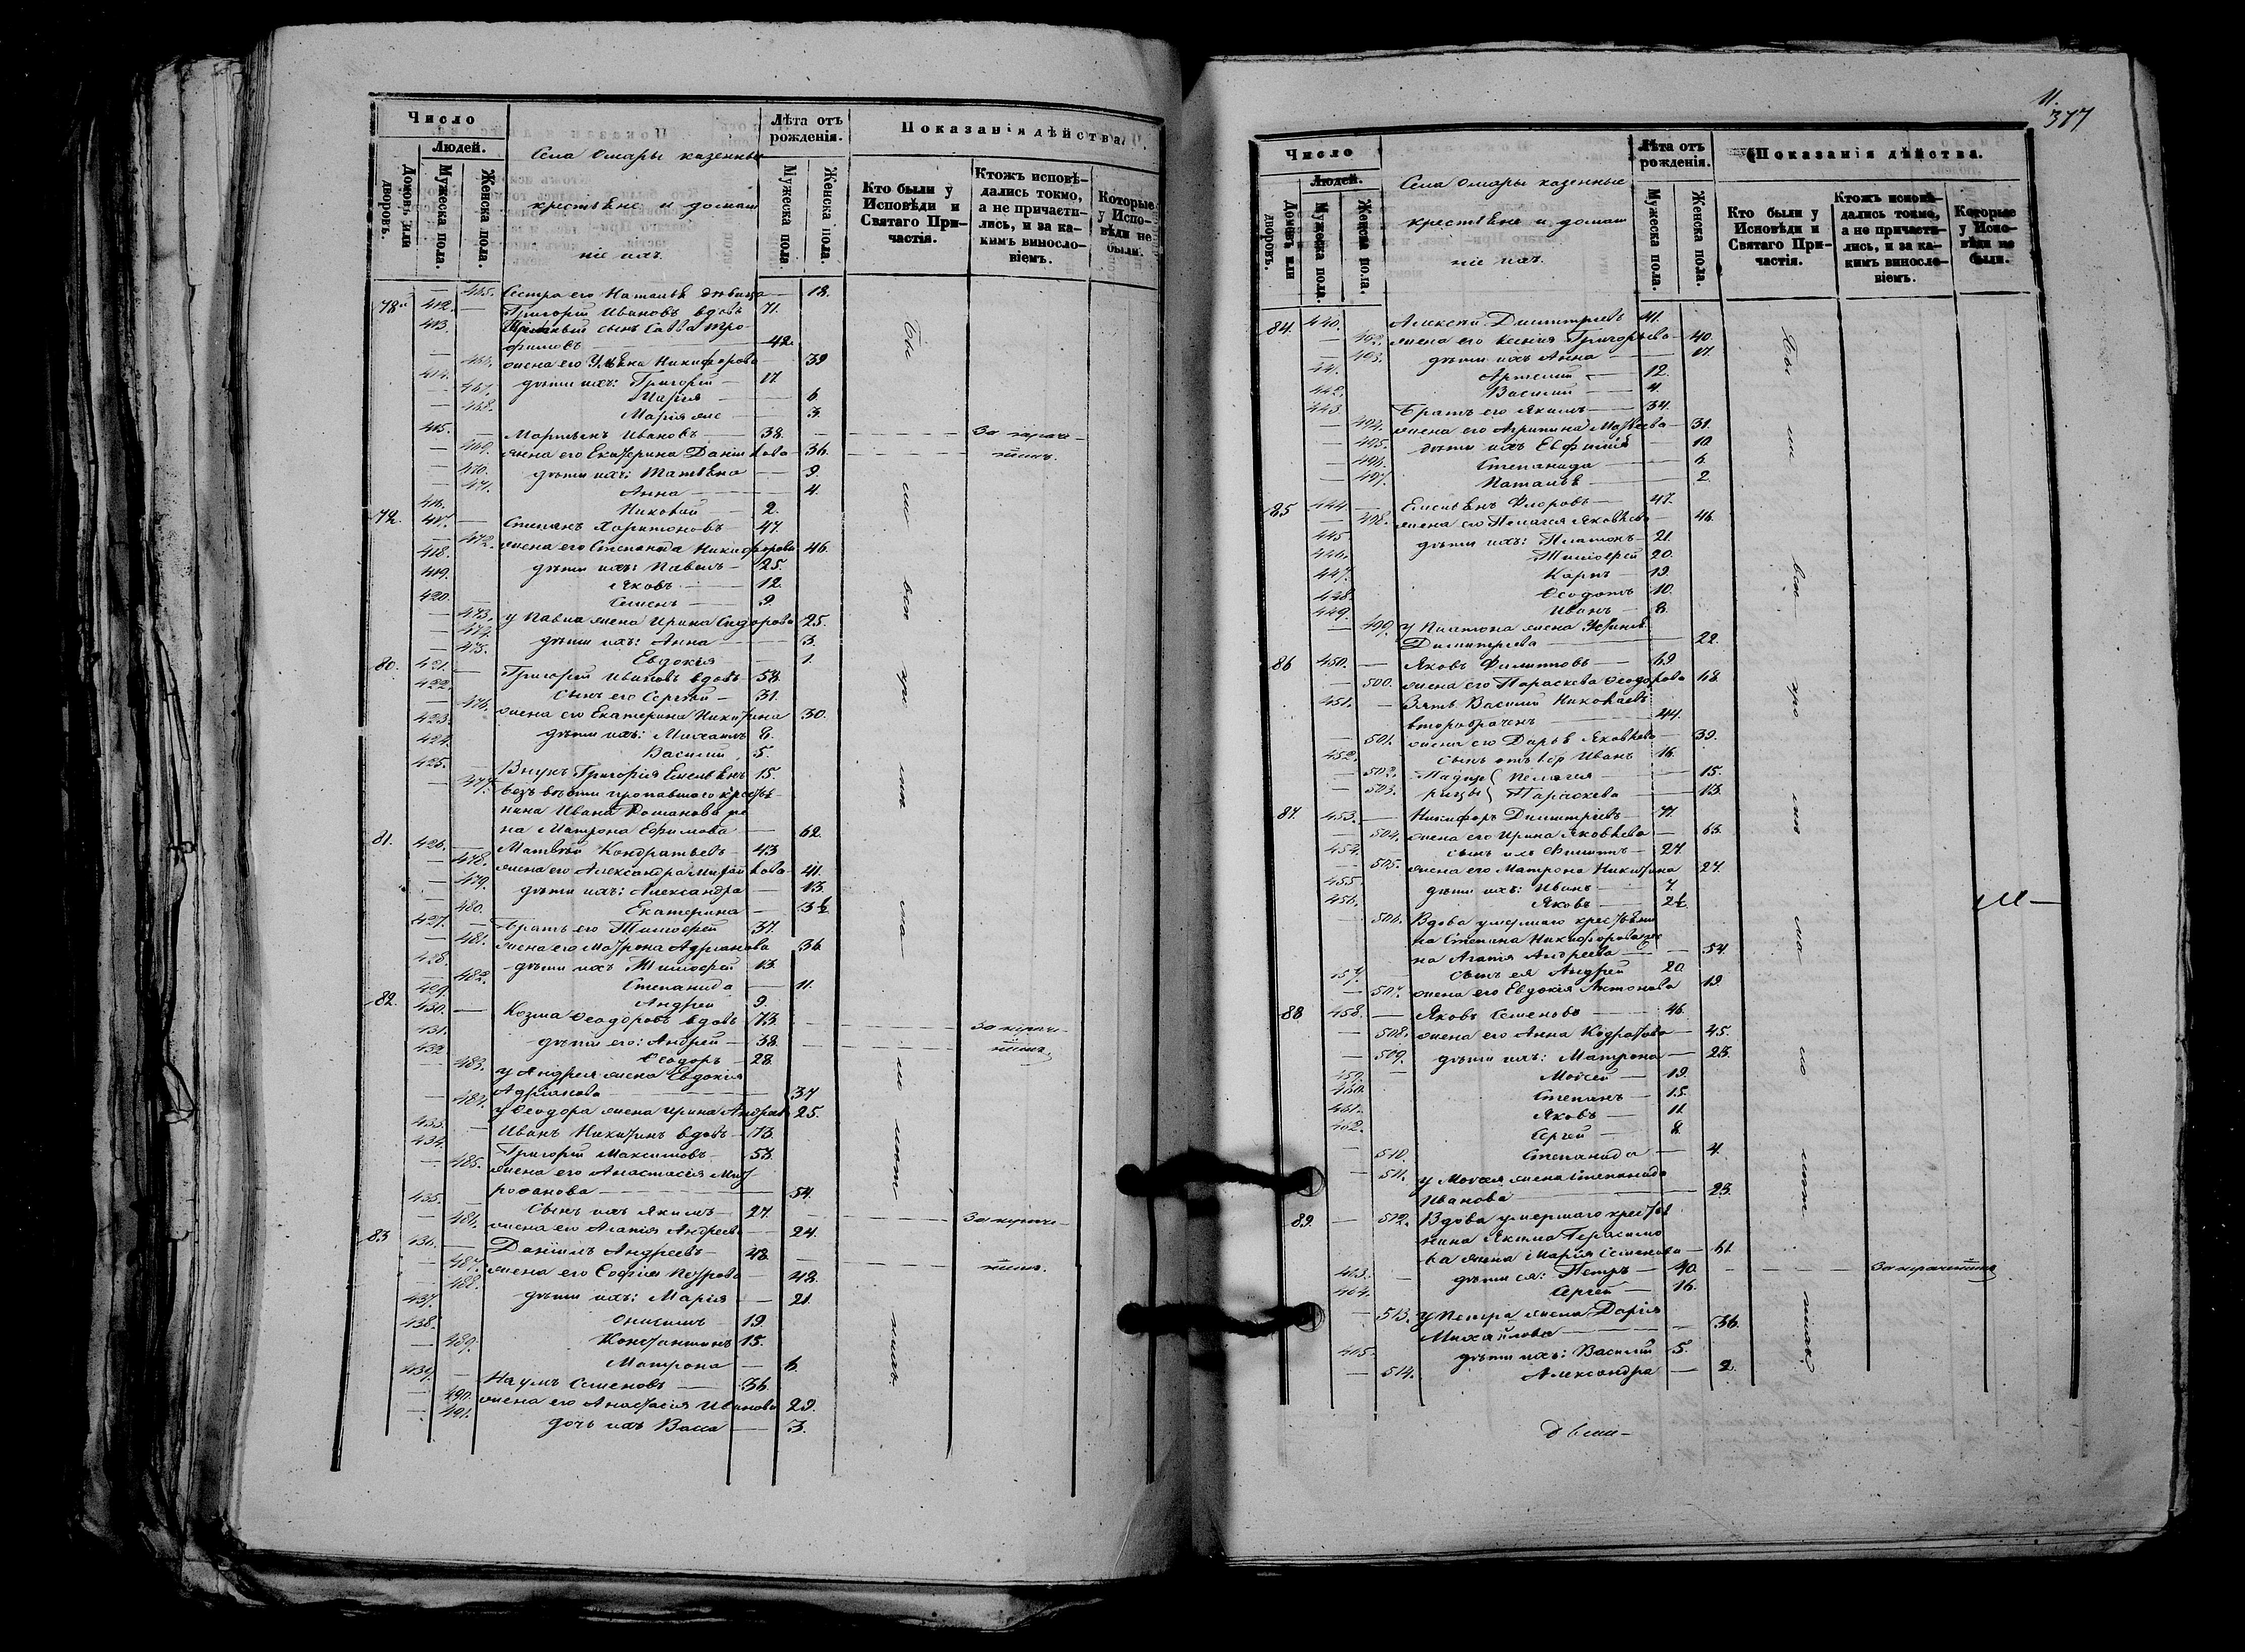 Число
Людей.
Домовъ или дворовъ.
Мужеска пола.
Женска пола.
Села Омары казенные
крестьяне и домаш
ніе ихъ.
Лѣта отъ рожденія.
Мужеска пола.
Женска пола.
Показанія дѣйства.
Кто были у Исповѣди и Святаго Причастія.
Ктожъ исповѣдались токмо, а не причастились, и за какимъ винословіемъ.
Которые у Исповѣди не были.
465. Сестра его Наталья дѣвица — 18.
78. 412. — Григорій Ивановъ вдовъ 71.
413. сынъ Савва Тро-
фимовъ — 42.
жена его Никифорова 39
414. дѣти ихъ: Григорій — 17.
467. Марія — 6.
468. Марія же — 3.
415. — Мартьянъ Ивановъ — 38. За
469. жена его Екатерина Данилова — 36.
470. дѣти ихъ: Татьяна — 9
471. Анна — 4.
416. Николай — 2.
79. 417. — Степанъ Харитоновъ — 47.
472. жена его Степанида Никифорова 46.
418. дѣти ихъ: Павелъ — 25.
419. Яковъ — 12.
420. Семенъ — 9.
473. у Павла жена Ирина Сидорова 25.
474. дѣти ихъ: Анна — 3.
475. Евдокія — 1.
80. 421. — Григорій Ивановъ вдовъ 58.
422. сынъ его Сергѣй — 31.
476. жена его Екатерина Никитина 30.
423. дѣти ихъ: Михаилъ 8.
424. Василій 5.
425. Внукъ Григорія Емельянъ 15.
477. безъ вѣсти пропавшаго крестья-
нина Ивана Романова же
на Матрона Ефимова — 62.
81. 426. — Матвѣй Кондратьевъ — 43
478. жена его Александра Михайлова 41.
479. дѣти ихъ: Александра — 13.
480. Екатерина — 3½
427. — Братъ его Тимофей 37.
481. жена его Матрона Адріанова 36.
428. дѣти ихъ Тимофей 13.
482. Степанида — 11.
429. Андрей 9.
82. 430. — Козма Ѳеодоровъ вдовъ 73.
431. дѣти его: Андрей — 38.
432 Ѳеодоръ — 28.
483. у Андрея жена Евдокія
Адріанова — 37
484. у Ѳеодора жена Ирина 25.
433. — Иванъ Никитинъ вдовъ — 73.
434. Григорій Максимовъ — 58.
485. жена его Анастасія Мит
рофанова — 54.
435. сынъ ихъ Якимъ — 27.
486. жена его Агапія Андреева — 24.
83 436. — Даніилъ Андреевъ — 48.
487. жена его Софія Петрова — 48.
488. дѣти ихъ: Марія — 21.
437. Онисимъ — 19.
438. Константинъ 15.
489. Матрона — 6.
439. — Наумъ Семеновъ — 36.
490. жена его Анастасія Иванова 29.
491. дочь ихъ Васса — 3.
11.
377
Число
Людей.
Домовъ или дворовъ.
Мужеска пола.
Женска пола.
Села Омары казенные
крестьяне и домаш
ніе ихъ.
Лѣта отъ рожденія.
Мужеска пола.
Женска пола.
Показанія дѣйства.
Кто были у Исповѣди и Святаго Причастія.
Ктожъ исповѣдались токмо, а не причастились, и за какимъ винословіемъ.
Которые у Исповѣди не были.
84. 440. Алексѣй Димитріевъ 41.
492. жена его Ксенія Григорьева — 40.
493. дѣти ихъ Анна — 17.
441. Артемій — 12.
442. Василій — 4.
443. Братъ его Якимъ — 34.
494. жена его Агрипина Матвеева — 31.
495. дѣти ихъ Евфимія 10.
496. Степанида — 6.
497. Наталья — 2.
85 444. — Емельянъ Флоровъ — 47.
498. жена его Пелагея Яковлева 46.
445. дѣти ихъ: Платонъ — 21.
446. Тимофей 20.
447. Карпъ — 19.
448. Ѳеодотъ 10.
449. Иванъ — 8.
499. у Платона жена
Димитріева — 22.
86 450. — Яковъ Филипповъ — 69.
500. жена его Параскева Ѳеодорова 68.
451. — Зять Василій Николаевъ
второбраченъ — 44.
501. жена его Дарья Яковлева — 39.
452. Иванъ 16.
502. Падче( Пелагея — 15.
503. рицы( Параскева — 13.
87. 453. — Никифоръ Димитріевъ — 71.
504. жена его Ирина Яковлева — 63.
454. сынъ ихъ Филиппъ — 27.
505. жена его Матрона Никитина 27.
455. дѣти ихъ: Иванъ — 7.
456. Яковъ — 2½.
506. Вдова умершаго крестьяни
на Степана Никифорова же
на Агапія Андреева — 54.
457. сынъ ея Андрей 20.
507. жена его Евдокія Антонова 19.
88 458. — Яковъ Семеновъ — 46.
508. жена его Анна Кодратова — 45.
509. дѣти ихъ: Матрона — 23.
459. Мойсей — 19.
460. Степанъ — 15.
461. Яковъ — 11.
462. Сергѣй — 8.
510. Степанида — 4.
511. у Мойсея жена Степанида
Иванова — 23.
89. — 512. Вдова умершаго кресть
нина Якима Герасимо
ва жена Марія Семенова — 61.
463. дѣти ея: Петръ — 40.
464. Сергѣй — 16.
513. у Петра жена Дарія
Михайлова — 36.
465. дѣти ихъ: Василій 5.
514. Александра — 2.